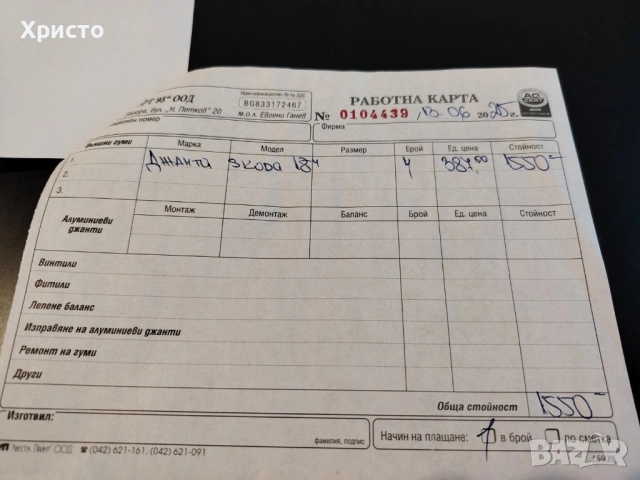 Христо
РТ 95" ООД
бул. „Н. Петков" 20
Идентификационен № по ДДС
BG833172467
м.о.л. Евгени Ганев
РАБОТНА КАРТА
№ 0104439 / 13.06 2025 г.
Фирма
Външни гуми Марка Модел Размер Брой Ед. цена Стойност
1. Джанти Шкода 18" 4 387.00 1550-
2.
3.
Алуминиеви джанти Монтаж Демонтаж Баланс Брой Ед. цена Стойност
Винтили
Фитили
Лепене баланс
Изправяне на алуминиеви джанти
Ремонт на гуми
Други
Обща стойност 1550-
Изготвил:
фамилия, подпис
Начин на плащане: в брой по сметка
☎ (042) 621-161, (042) 621-091
BAZAR